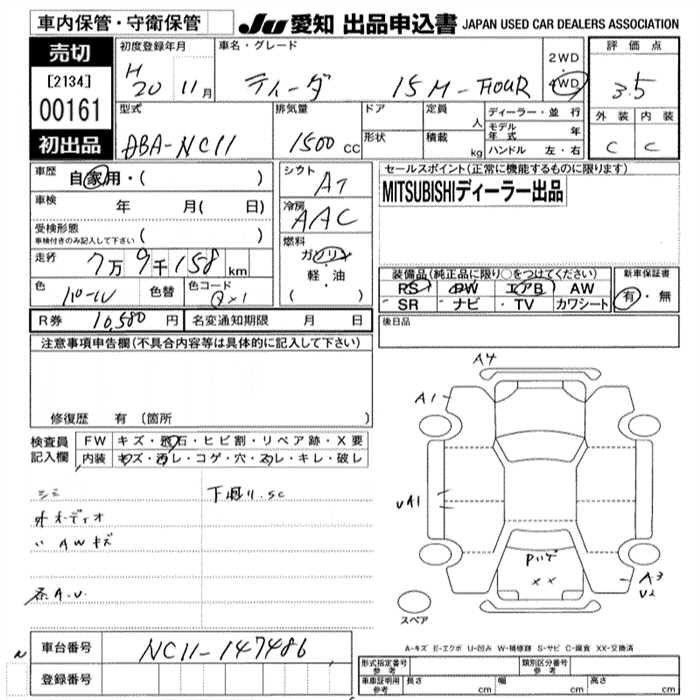 車内保管・守衛保管
JU 愛知 出品申込書 JAPAN USED CAR DEALERS ASSOCIATION
売切
[2134]
00161
初出品
初度登録年月
H 20 11月
車名・グレード
ティーダ 15M-FOUR
2WD
4WD
評価点
3.5
外装 内装
C C
型式
DBA-NC11
排気量
1500 cc
ドア
形状
定員 人
積載 kg
ディーラー・並行
モデル年式 年
ハンドル 左・右
車歴
自家用・( )
車検 年 月( 日)
受検形態
車検付きのみ記入して下さい ( )
走行 7万9千158 km
色 パール 色替 色コード QX1
シフト AT
冷房 AAC
燃料
ガソリン
軽・油
( )
セールスポイント(正常に機能するものに限ります)
MITSUBISHIディーラー出品
装備品(純正品に限り○をつけてください)
RS PW エアB AW
SR ・ナビ ・TV カワシート
新車保証書
有・無
R券 10,580 円 名変通知期限 月 日
後日品
注意事項申告欄(不具合内容等は具体的に記入して下さい)
修復歴 有 〔箇所 〕
検査員記入欄
FW キズ・飛石・ヒビ割・リペア跡・X要
内装 キズ・汚レ・コゲ・穴・スレ・キレ・破レ
シミ 下廻り.SC
オーディオ
〃 AWキズ
A4
A1
UA1
Pいげ
××
A3
U2
スペア
A-キズ E-エクボ U-凹み W-補修跡 S-サビ C-腐食 XX-交換済
車台番号 NC11-147486
登録番号
形式指定番号 参考
類別区分番号 参考
車庫証明用 参考 長さ cm 幅 cm 高さ cm